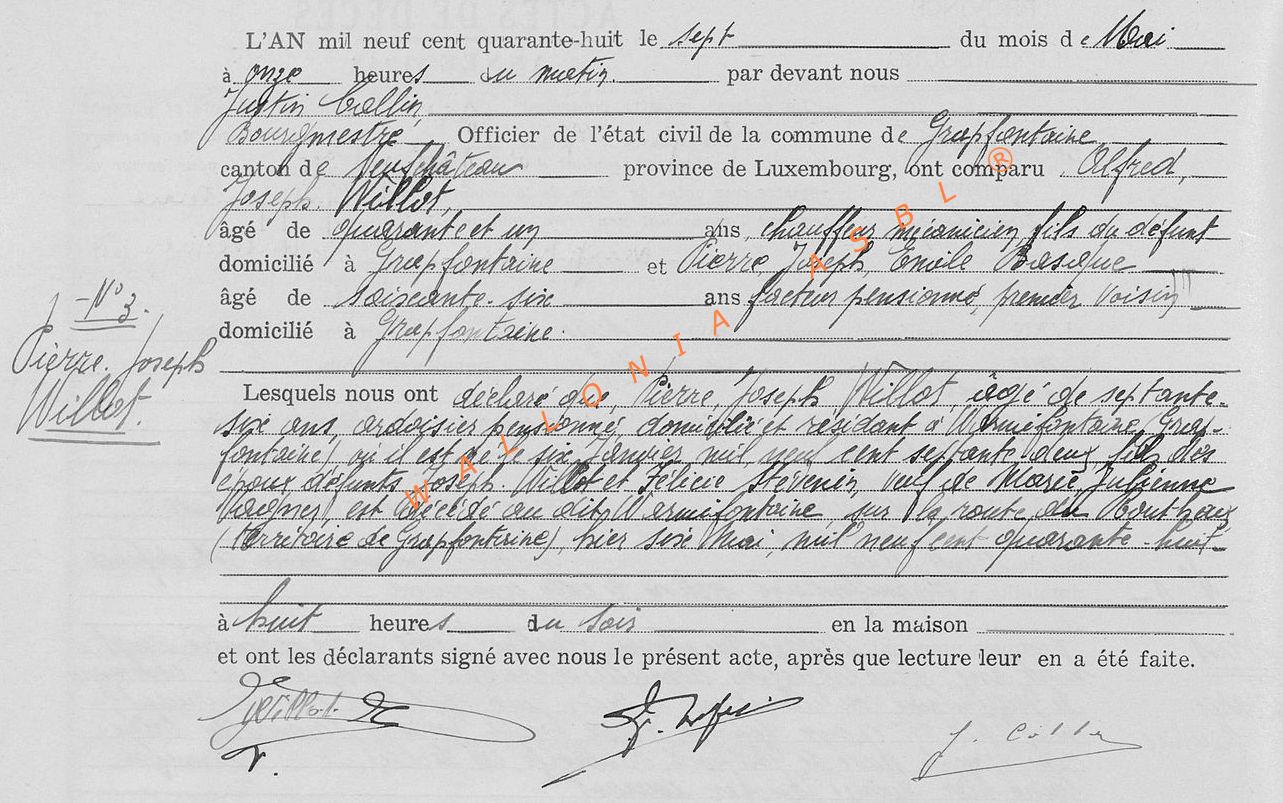 L'AN mil neuf cent quarante-huit le sept du mois de Mai
à onze heures du matin. par devant nous
Justin Collin,
Bourgmestre, Officier de l'état civil de la commune de Grapfontaine
canton de Neufchâteau province de Luxembourg, ont comparu Alfred,
Joseph Willot,
âgé de quarante et un ans, chauffeur mécanicien, fils du défunt
domicilié à Grapfontaine et Pierre, Joseph, Emile
âgé de soixante-six ans facteur pensionné, premier voisin
domicilié à Grapfontaine.
- N° 3.
Pierre Joseph
Willot.
Lesquels nous ont déclaré que, Pierre, Joseph Willot âgé de septante-
six ans, ardoisier pensionné, domicilié et résidant à Warmifontaine (Grap-
fontaine) où il est né le six Janvier mil neuf cent septante deux fils des
époux défunts Joseph Willot et Félicie Stévenin, veuf de Marie Julienne
est décédé au dit Warmifontaine, sur la route
(territoire de Grapfontaine), hier six Mai, mil neuf cent quarante-huit-
à huit heures du soir en la maison
et ont les déclarants signé avec nous le présent acte, après que lecture leur en a été faite.
Willot
J. Collin
WALLONIA ASBL ®